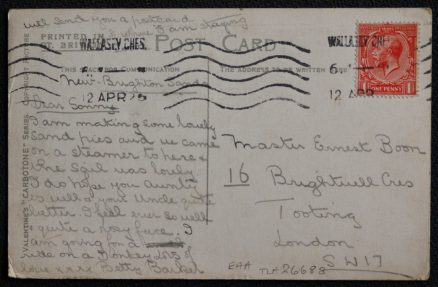 will send you a postcard
where I am staying
PRINTED IN
GT. BRIT
POST CARD
WALLASEY CHES.
12 APR 25
WALLASEY CHES.
12 APR
ONE PENNY
THIS SPACE FOR COMMUNICATION
THE ADDRESS TO BE WRITTEN
New Brighton Sands
Dear Sonny
I am making some lovely
sand pies and we came
on a steamer to here &
the sail was lovely
I do hope you Aunty
is well & your Uncle quite
better. I feel ever so well
& quite a rosy face. I
am going for a
ride on a Donkey lots of
love xxxx Betty Barker
Master Ernest Boon
16 Brightwell Cres
Tooting
London
SW17
VALENTINE'S "CARBOTONE" SERIES
26688